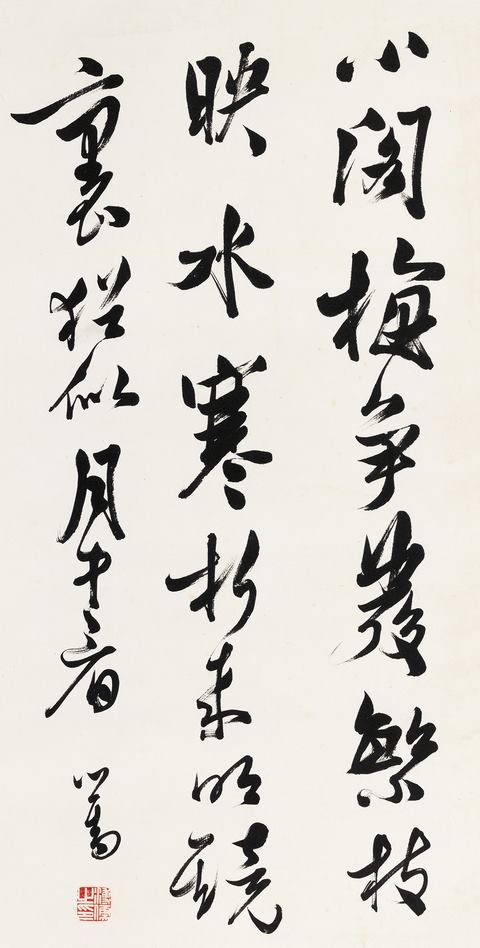 小閣梅爭發繁枝
映水寒折來明鏡
裏猶似月中看 心畬